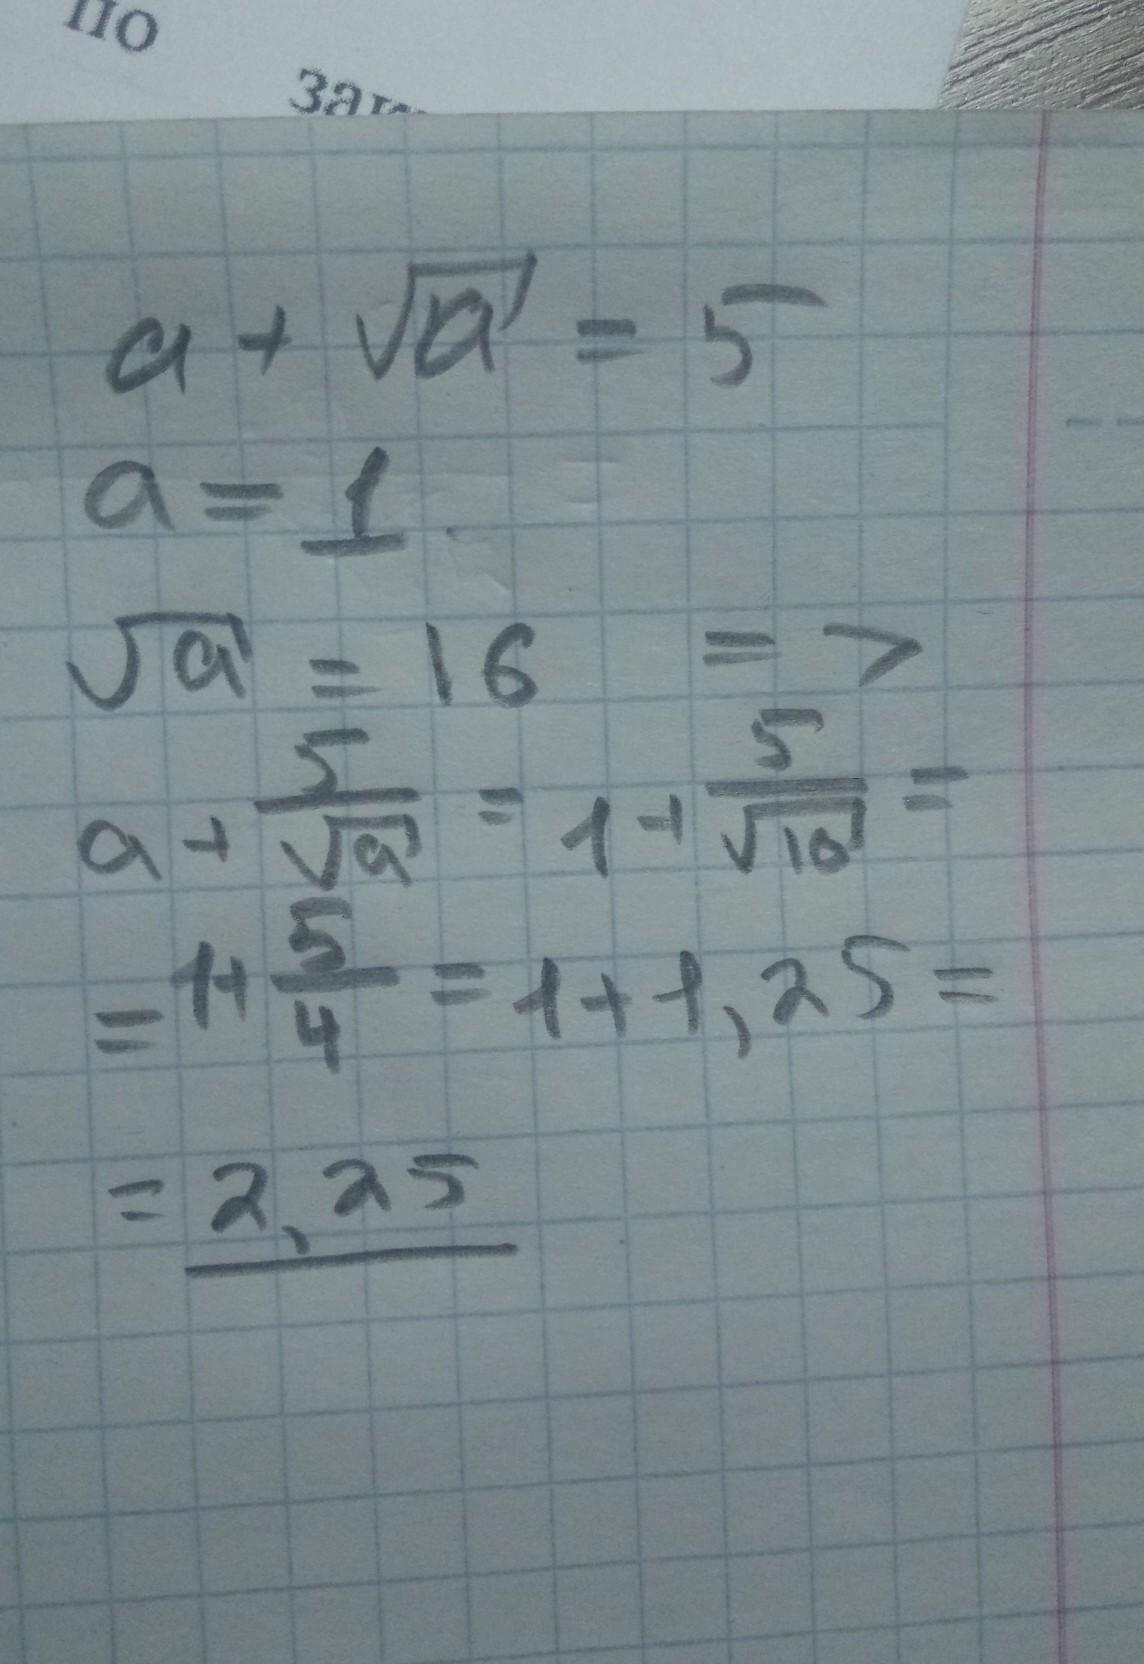 по
зак
a + √a = 5
a = 1
√a = 16 =>
a + 5/√a = 1 + 5/√16 =
= 1 + 5/4 = 1 + 1,25 =
= 2,25